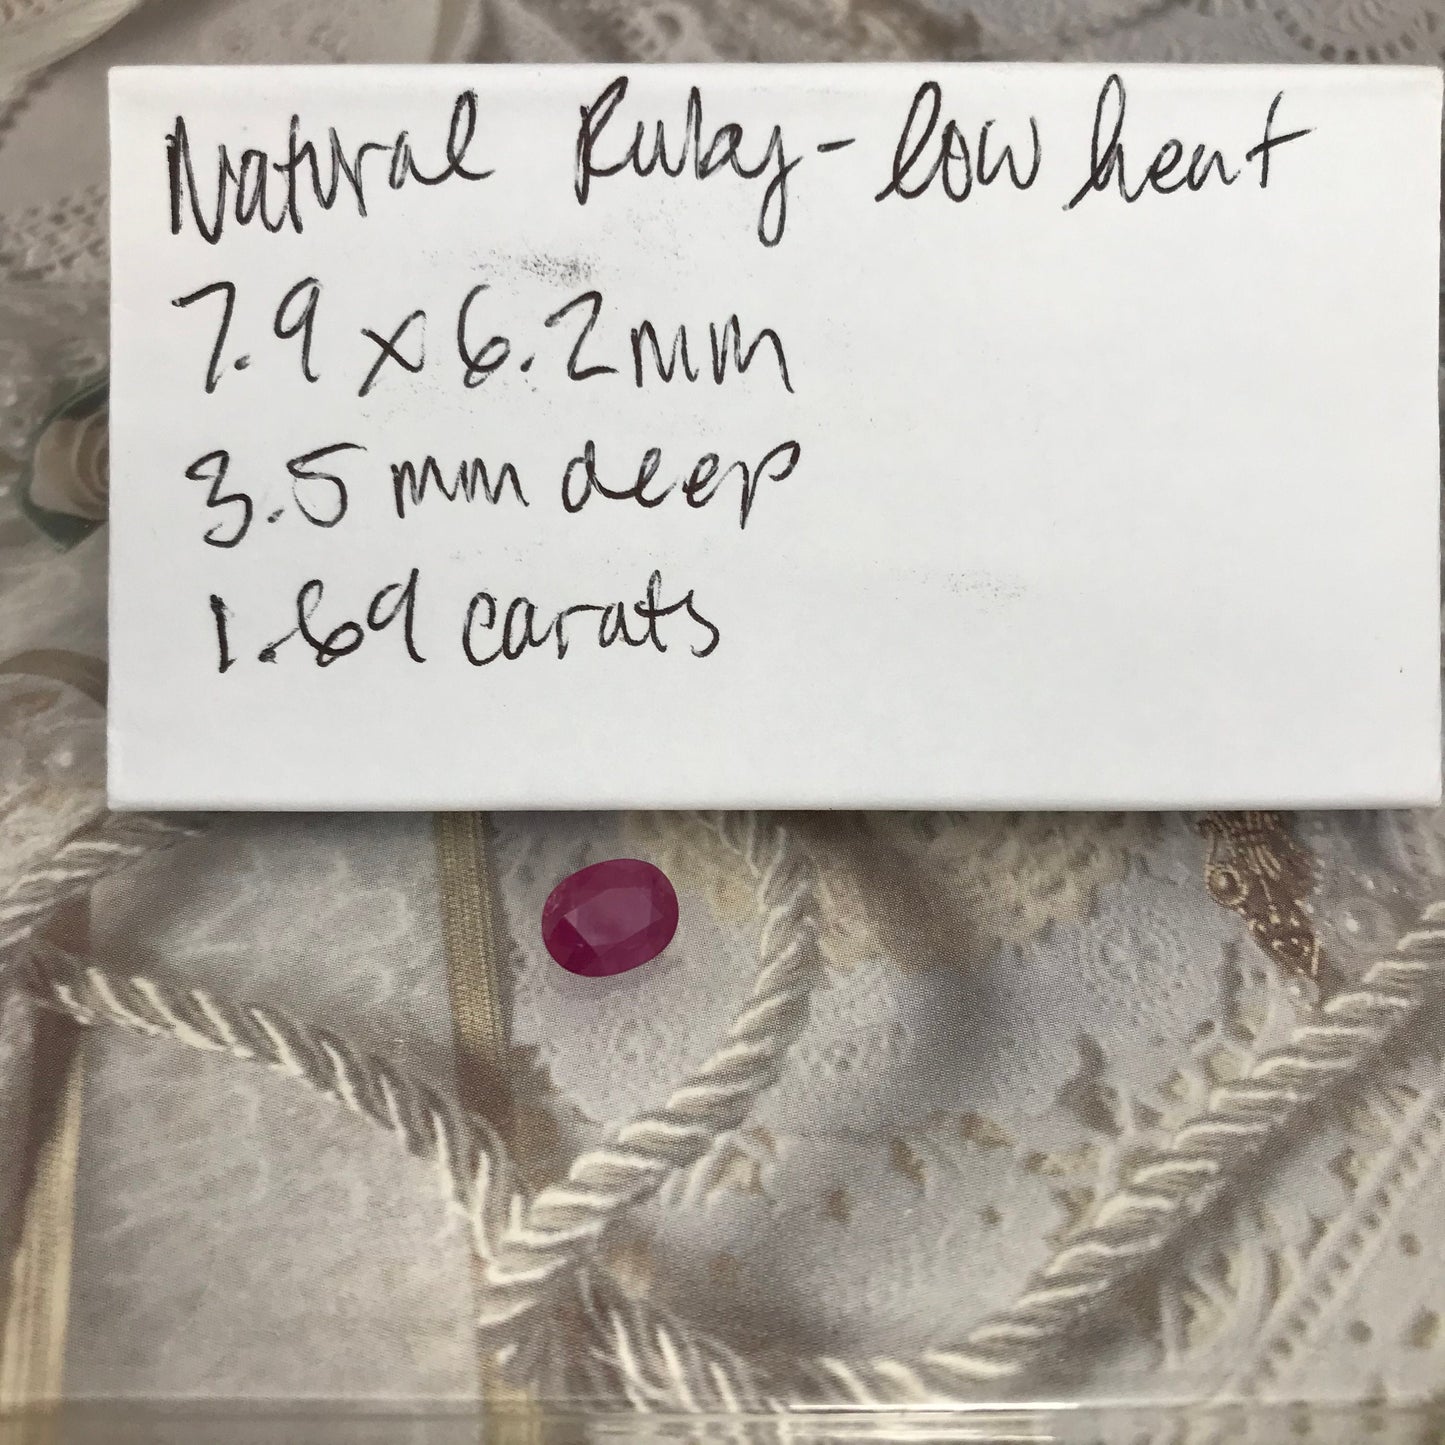 Natural Ruby - low heat
7.9 x 6.2mm
3.5mm deep
1.69 carats